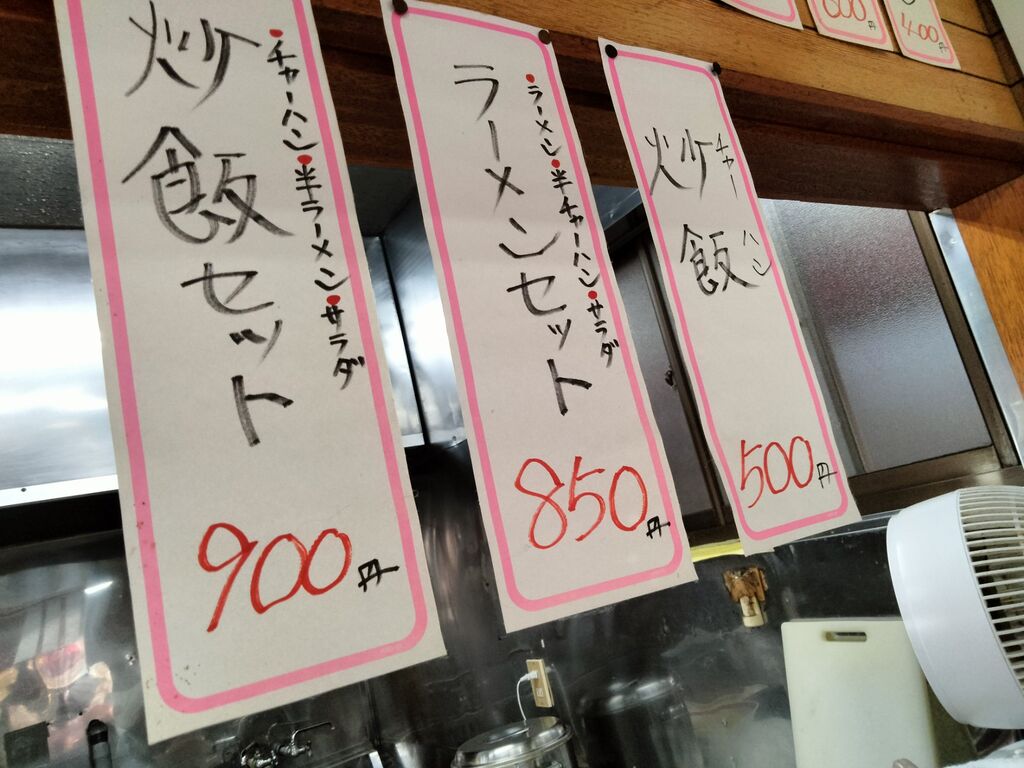 炒飯セット
・チャーハン・半ラーメン・サラダ
900円
ラーメンセット
・ラーメン・半チャーハン・サラダ
850円
炒飯
チャーハン
500円
600円
400円